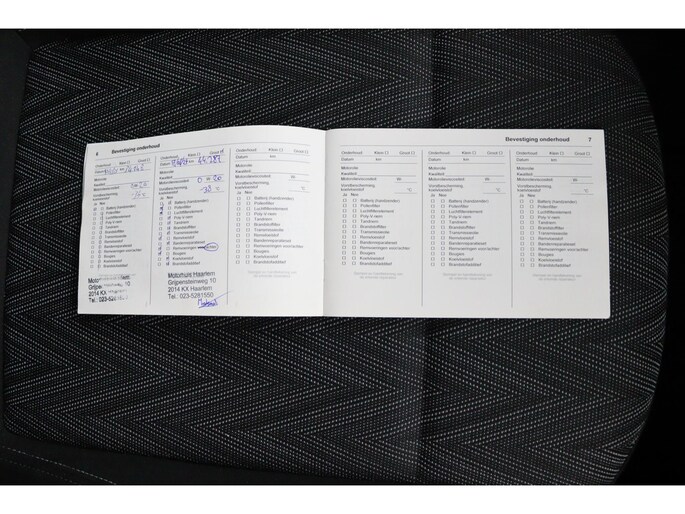 6 Bevestiging onderhoud
Onderhoud Klein [ ] Groot [ ]
Datum km
Motorolie
Kwaliteit
Motorolieviscositeit
Vorstbescherming,
koelvloeistof
Ja Nee
Batterij (handzender)
Pollenfilter
Luchtfilterelement
Poly-V-riem
Tandriem
Brandstoffilter
Transmissieolie
Remvloeistof
Bandenreparatieset
Remvoeringen voor/achter
Bougies
Koelvloeistof
Brandstofadditief
2014 KX Haarlem
Onderhoud Klein [ ] Groot [ ]
Datum km 44.787
Motorolie
Kwaliteit
Motorolieviscositeit
Vorstbescherming,
koelvloeistof
Ja Nee
Batterij (handzender)
Pollenfilter
Luchtfilterelement
Poly-V-riem
Tandriem
Brandstoffilter
Transmissieolie
Remvloeistof
Bandenreparatieset
Remvoeringen voor/achter
Bougies
Koelvloeistof
Brandstofadditief
Motorhuis Haarlem
Grijpensteinweg 10
2014 KX Haarlem
Tel.: 023-5281550
Onderhoud Klein [ ] Groot [ ]
Datum km
Motorolie
Kwaliteit
Motorolieviscositeit W-
Vorstbescherming,
koelvloeistof °C
Ja Nee
Batterij (handzender)
Pollenfilter
Luchtfilterelement
Poly-V-riem
Tandriem
Brandstoffilter
Transmissieolie
Remvloeistof
Bandenreparatieset
Remvoeringen voor/achter
Bougies
Koelvloeistof
Brandstofadditief
Bevestiging onderhoud 7
Onderhoud Klein [ ] Groot [ ]
Datum km
Motorolie
Kwaliteit
Motorolieviscositeit W-
Vorstbescherming,
koelvloeistof °C
Ja Nee
Batterij (handzender)
Pollenfilter
Luchtfilterelement
Poly-V-riem
Tandriem
Brandstoffilter
Transmissieolie
Remvloeistof
Bandenreparatieset
Remvoeringen voor/achter
Bougies
Koelvloeistof
Brandstofadditief
Onderhoud Klein [ ] Groot [ ]
Datum km
Motorolie
Kwaliteit
Motorolieviscositeit W-
Vorstbescherming,
koelvloeistof °C
Ja Nee
Batterij (handzender)
Pollenfilter
Luchtfilterelement
Poly-V-riem
Tandriem
Brandstoffilter
Transmissieolie
Remvloeistof
Bandenreparatieset
Remvoeringen voor/achter
Bougies
Koelvloeistof
Brandstofadditief
Onderhoud Klein [ ] Groot [ ]
Datum km
Motorolie
Kwaliteit
Motorolieviscositeit W-
Vorstbescherming,
koelvloeistof °C
Ja Nee
Batterij (handzender)
Pollenfilter
Luchtfilterelement
Poly-V-riem
Tandriem
Brandstoffilter
Transmissieolie
Remvloeistof
Bandenreparatieset
Remvoeringen voor/achter
Bougies
Koelvloeistof
Brandstofadditief